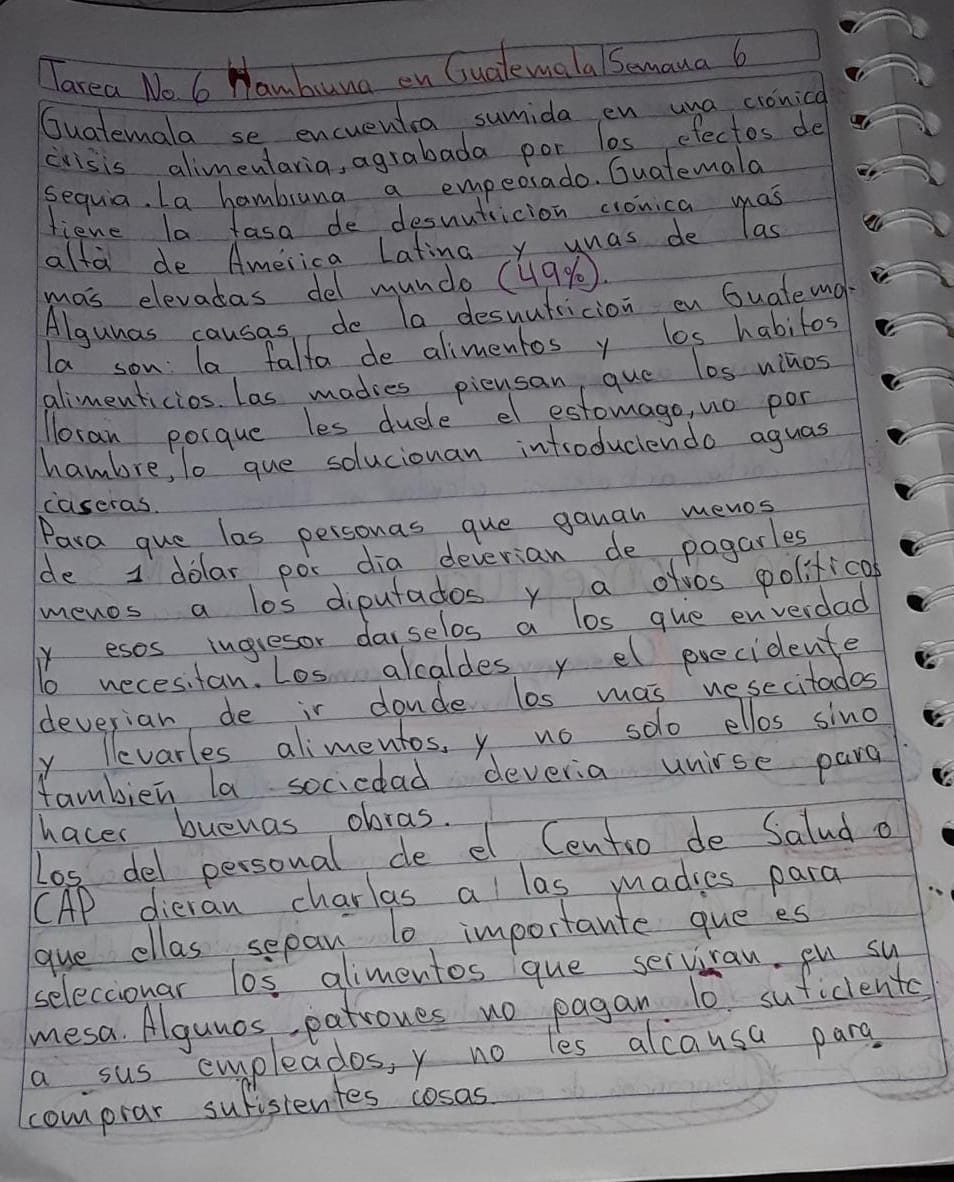 Tarea No. 6 Hambruna en Guatemala Semana 6
Guatemala se encuentra sumida en una crónica
crisis alimentaria, agrabada por los efectos de
sequia. La hambruna a empeorado. Guatemala
tiene la tasa de desnutricion crónica más
alta de América Latina y unas de las
más elevadas del mundo (49%).
Algunas causas de la desnutrición en Guatema-
la son: la falta de alimentos y los habitos
alimenticios. Las madres piensan que los niños
lloran porque les duele el estomago, no por
hambre, lo que solucionan introduciendo aguas
caseras.
Para que las personas que ganan menos
de 1 dólar por dia deverian de pagarles
menos a los diputados y a otros politicos
y esos ingresor darselos a los que enverdad
lo necesitan. Los alcaldes y el precidente
deverian de ir donde los más nesecitados
y llevarles alimentos, y no solo ellos sino
también la sociedad deveria unirse para
hacer buenas obras.
Los del personal de el Centro de Salud o
CAP dieran charlas a las madres para
que ellas sepan lo importante que es
seleccionar los alimentos que serviran en su
mesa. Algunos patrones no pagan lo suficiente
a sus empleados, y no les alcansa para
comprar sufisientes cosas.